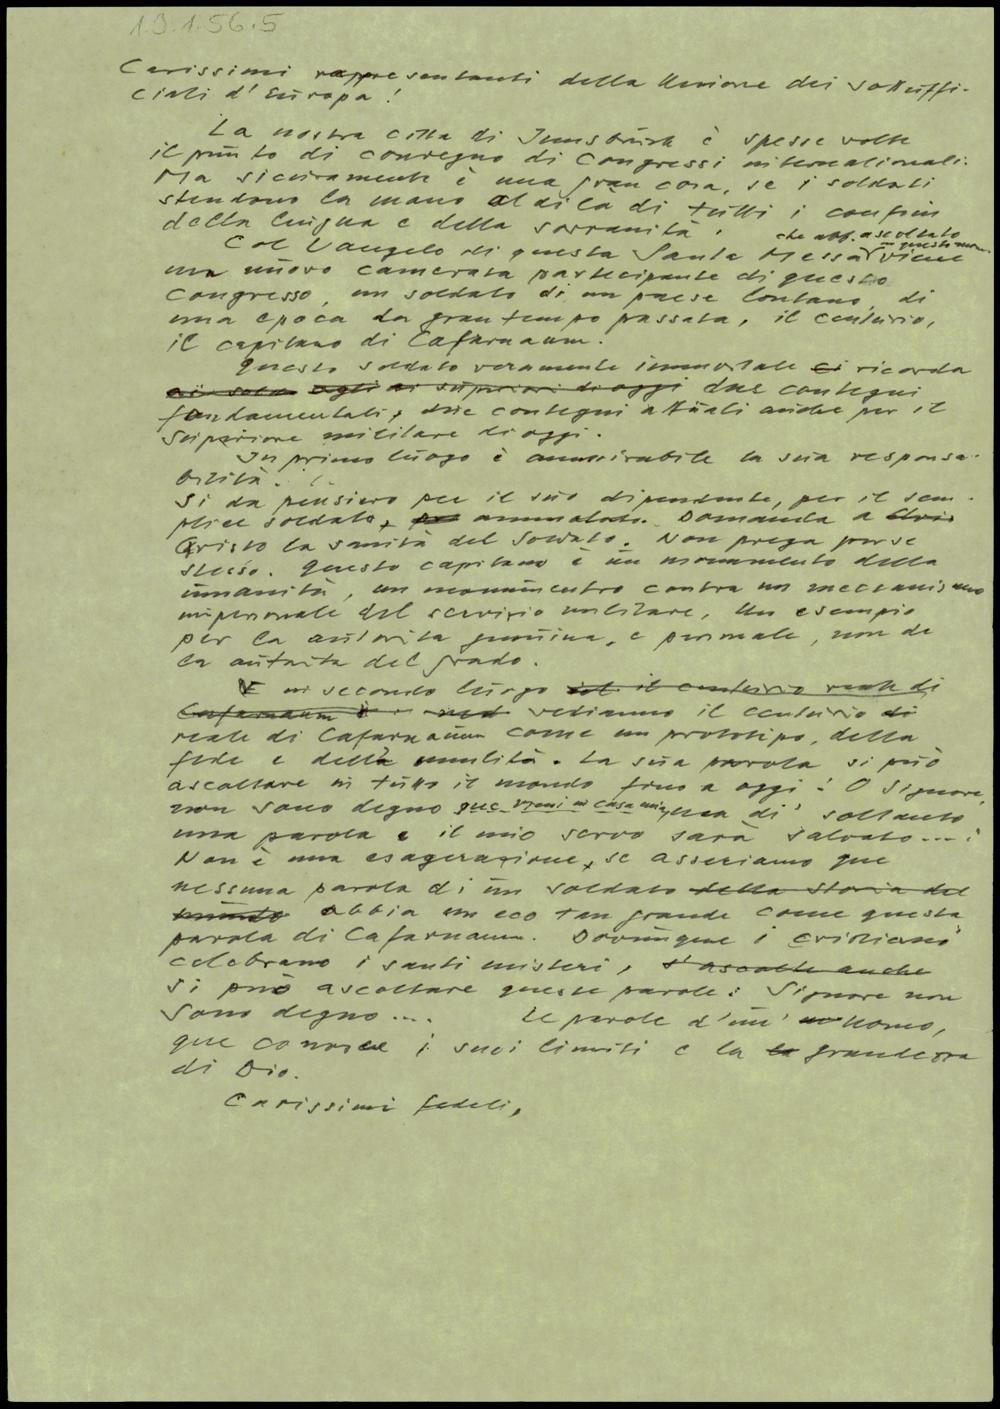 1.3.1.56.5
Carissimi rappresentanti della Unione dei sottuffi-
ciali d'Europa!
La nostra citta di Innsbruck è spesse volte
il punto di convegno di Congressi internationali.
Ma sicuramente è una gran cosa, se i soldati
stendono la mano al di là di tutti i confini
della lingua e della sovranità.
che abb. ascoltato
in questo mom.
Col Vangelo di questa Santa Messa viene
un nuovo camerata partecipante di questo
Congresso, un soldato di un paese lontano, di
una epoca da gran tempo passata, il centurio,
il capitano di Cafarnaum.
Questo soldato veramente immortale ci ricorda
ai sold agli ai superiori di oggi due contegni
fondamentali, due contegni attuali anche per il
Superiore militare di oggi.
In primo luogo è ammirabile la sua responsa-
bilità.
Si da pensiero per il suo dipendente, per il sem-
plice soldato, ammalato. Domanda a Chri
Cristo la sanità del Soldato. Non prega per se
stesso. Questo capitano è un monumento della
umanità, un monumentro contra un meccanismo
impersonale del servizio militare, Un esempio
per la autorita genuina, e personale, non de
la autorita del grado.
E in secondo luogo il centurio reale di
Cafarnaum è vediamo il centurio di
reale di Cafarnaum come un prototipo, della
fede e della umilità. La sua parola si può
ascoltare in tutto il mondo fino a oggi: O Signore,
non sono degno que vieni in casa mia, ma di' soltanto
una parola e il mio servo sarà salvato....!
Non è una esagerazione, se asseriamo que
nessuna parola di un soldato della storia del
mundo abbia un eco tan grande come questa
parola di Cafarnaum. Dovunque i cristiani
celebrano i santi misteri, s'ascolte anche
si può ascoltare queste parole: Signore non
Sono degno.... Le parole d'un' uomo,
que conosce i suoi limiti e la la grandezza
di Dio.
Carissimi fedeli,